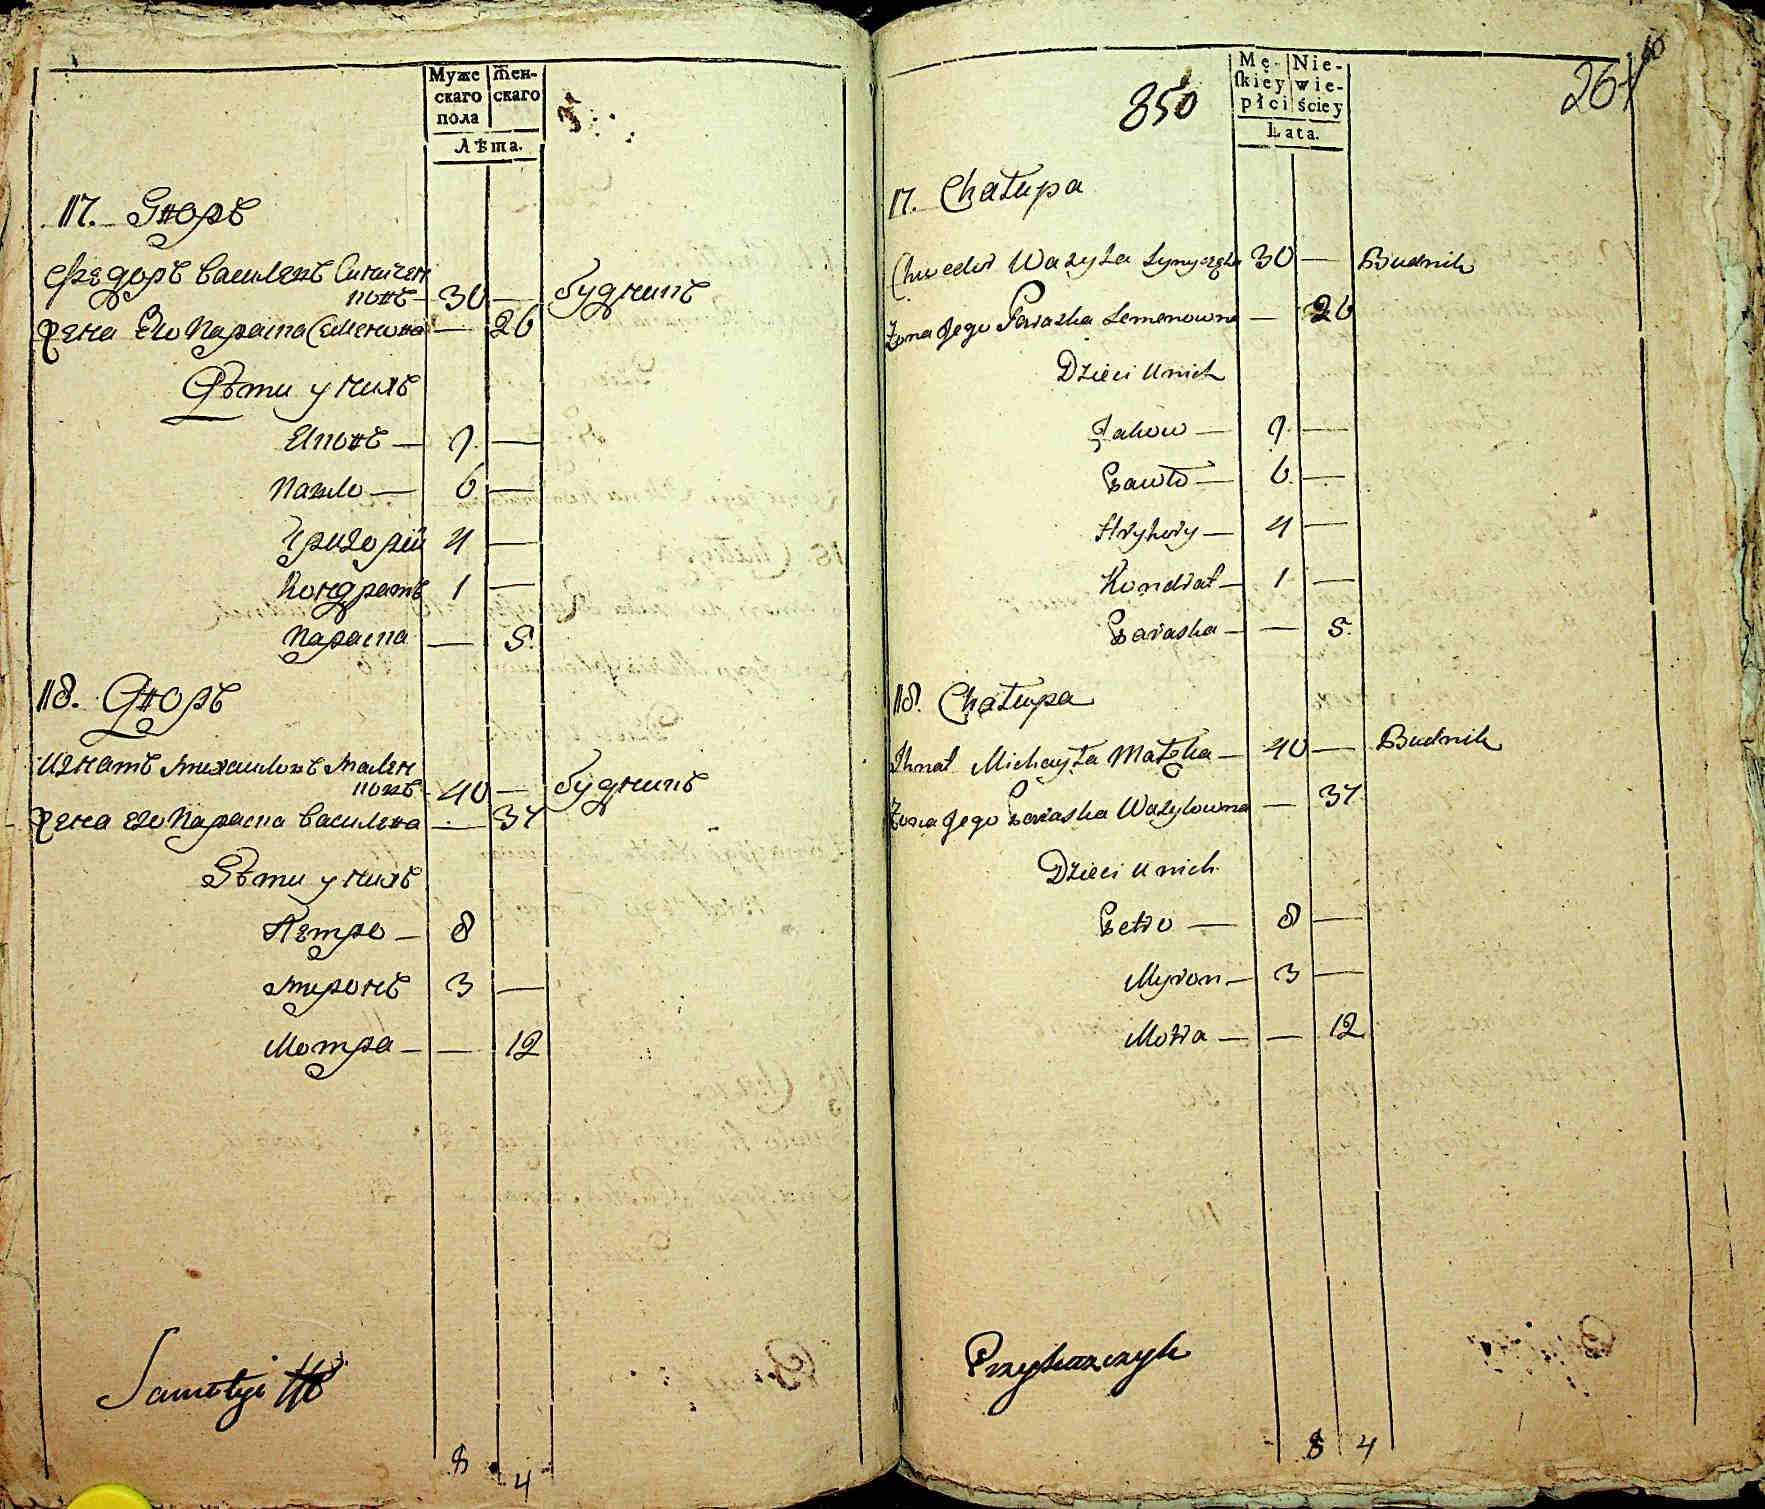 Муже
скаго
пола
Жен-
скаго
Лѣта.
17. Дворъ
Федоръ Василевъ Синичен
ковъ — 30 — будникъ
Жена Его Параска Семенова — 26
Дѣти у нихъ
Яковъ — 9. —
Павло — 6 —
Григорій 4 —
Кондратъ 1 —
Параска — 5.
18. Дворъ
Игнатъ Михаиловъ Мален
ковъ - 40 — будникъ
Жена Его Параска Василева — 37
Дѣти у нихъ
Петро — 8
Миронъ 3 —
Мотра — — 12
8 4
850
261
Mę-
ſkiéy
płci
Nie-
wie-
ściey
Lata.
17. Chałupa
Chwedor Wasyla 30 — Budnik
Żona Jego Paraska Semenowna — 26
Dzieci u nich
Jakow — 9. —
Pawło — 6. —
Hryhory — 4 —
Kondrat — 1 —
Paraska — — 5.
18. Chałupa
Ihnat Michayła — 40 — Budnik
Żona Jego Paraska Wasylowna — 37
Dzieci u nich
Petro — 8 —
Myron — 3 —
Motra — — 12
8 4